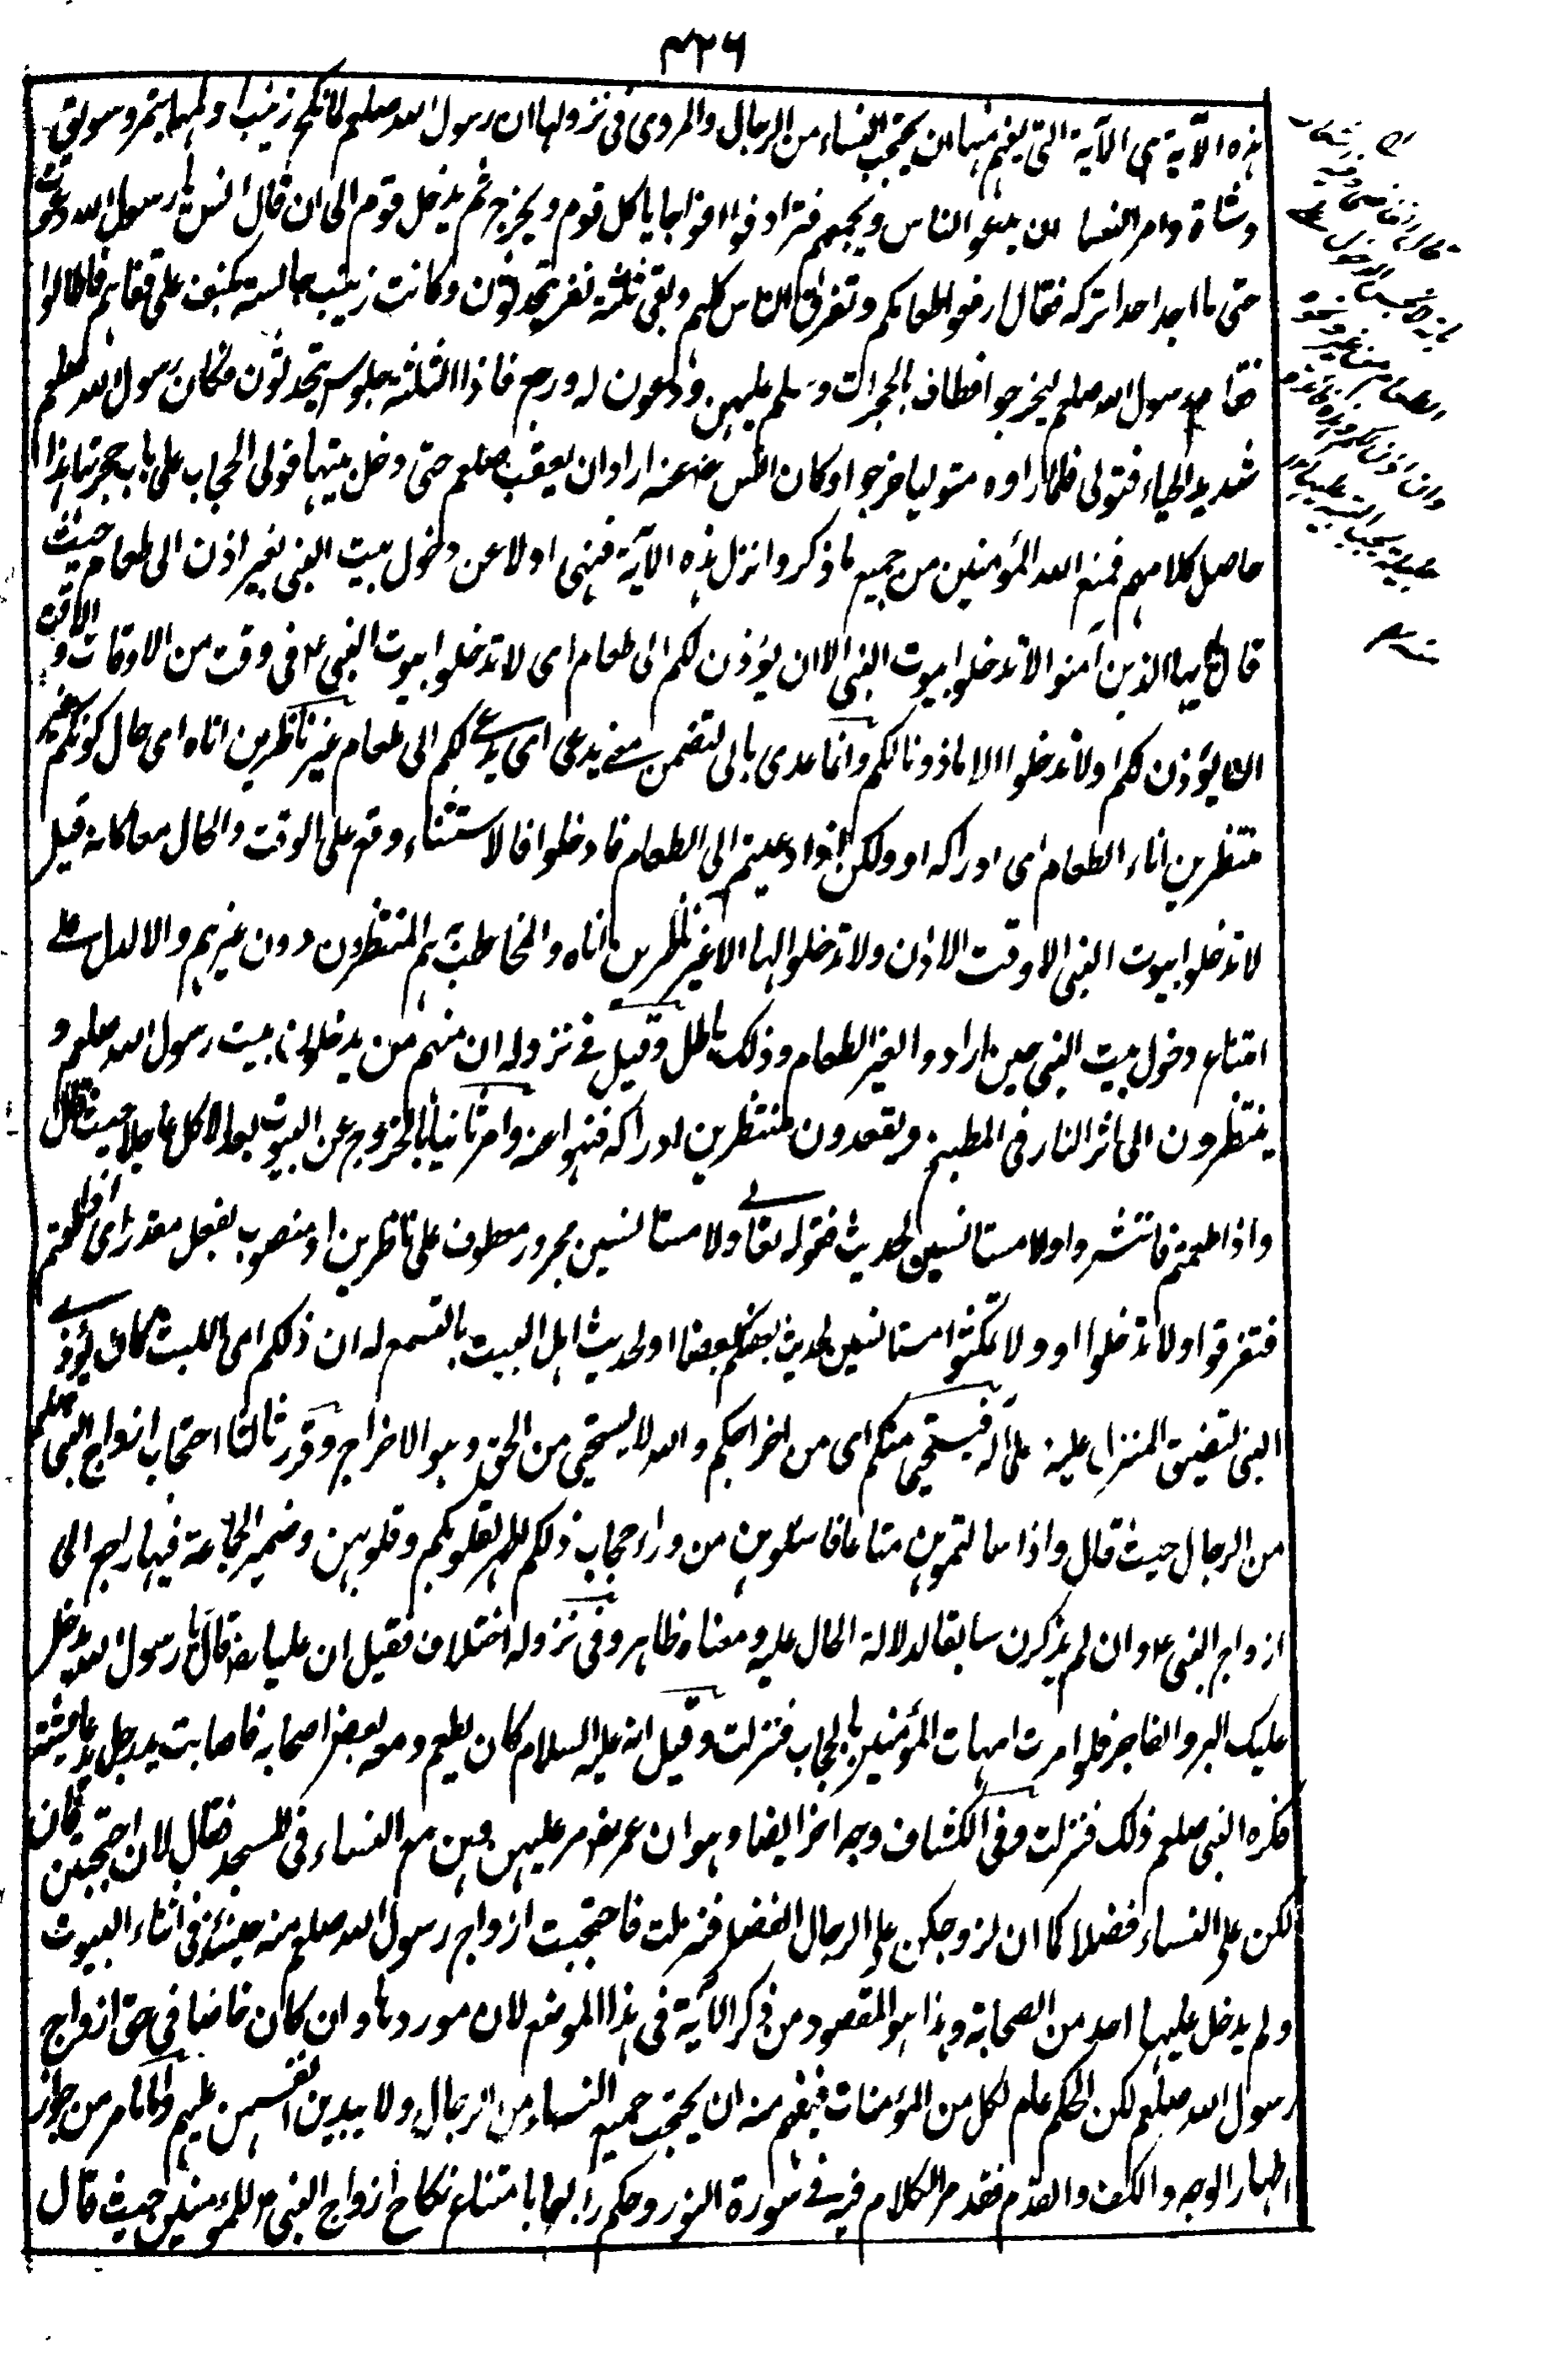 ۴۲۶
هذه الآية هي الآية التي يفهم منها ان يحتجب النساء من الرجال والمروي في نزولها ان رسول الله صلعم لما نكح زينب اولم لها بتمر وسويق
وشاة وامر انسا ان يدعو الناس ويجمعهم فترادفوا افواجا ياكل قوم ويخرج ثم يدخل قوم الى ان قال انس يا رسول الله دعوت
حتى ما اجد احدا تركه فقال ارفعوا طعامكم وتفرق الناس كلهم وبقي ثلثة نفر يتحدثون وكانت زينب جالسة
فقام رسول الله صلعم ليخرجوا فطاف بالحجرات وسلم عليهن ودعون له ورجع فاذا الثلثة جلوس يتحدثون فكان رسول الله صلعم
شديد الحياء فتولى فلما راوه متوليا خرجوا وكان انس رضي عنه اراد ان يعقب صلعم حتى دخل بيتها فولى الحجاب على باب حجرتها هذا
حاصل كلامهم فمنع الله المؤمنين من جميع ما ذكر وانزل هذه الآية فنهى اولا عن دخول بيت النبي بغير اذن الى طعام حيث
قال يا ايها الذين آمنوا لا تدخلوا بيوت النبي الا ان يؤذن لكم الى طعام اى لا تدخلوا بيوت النبي ع م في وقت من الاوقات الا وقت
ان يؤذن لكم او لا تدخلوا الا ماذونا لكم وانما عدى بالى لتضمن معنى يدعى اى يدعى لكم الى طعام غير ناظرين اناه اى حال كونكم غير
منتظرين اناء الطعام اى ادراكه او ولكن اذا دعيتم الى الطعام فادخلوا فالاستثناء وقع على الوقت والحال معا كانه قيل
لا تدخلوا بيوت النبي الا وقت الاذن ولا تدخلوا لها الا غير ناظرين اناه والمخاطب هم المنتظرون دون غيرهم والا لدل على
امتناع دخول بيت النبي حين ارادوا لغير الطعام وذلك باطل وقيل في نزوله ان منهم من يدخلون بيت رسول الله صلعم و
ينتظرون الى اثر النار في المطبخ ويقعدون منتظرين لادراكه فنهوا عنه وامر ثانيا بالخروج عن البيوت بعد الاكل عاجلا حيث قال
واذا طعمتم فانتشروا ولا مستانسين لحديث فقوله تعالى ولا مستانسين مجرور معطوف على ناظرين او منصوب بفعل مقدر اى اذا طعمتم
فتفرقوا ولا تدخلوا او ولا تمكثوا مستانسين لحديث بعضكم بعضا او لحديث اهل البيت بالتسمع له ان ذلكم اى اللبث كان يؤذى
النبي لتضيق المنزل عليه وعلى اهله فيستحيى منكم اى من اخراجكم والله لا يستحيى من الحق وهو الاخراج وقرر ثالثا احتجاب ازواج النبي صلعم
من الرجال حيث قال واذا سالتموهن متاعا فاسئلوهن من وراء حجاب ذلكم اطهر لقلوبكم وقلوبهن وضمير الجماعة فيها راجع الى
ازواج النبي ع م وان لم يذكرن سابقا لدلالة الحال عليه ومعناه ظاهر وفي نزوله اختلاف فقيل ان عليا رض قال يا رسول الله يدخل
عليك البر والفاجر فلو امرت امهات المؤمنين بالحجاب فنزلت وقيل انه عليه السلام كان يطعم ومعه بعض اصحابه فاصابت يد رجل يد عايشة
فكره النبي صلعم ذلك فنزلت وفي الكشاف وجه آخر ايضا وهو ان عمر رض مر عليهن وهن مع النساء في المسجد فقال لان احتجبتن فان
لكن على النساء فضلا كما ان لزوجكن على الرجال الفضل فنزلت فاحتجبت ازواج رسول الله صلعم منه حينئذ في اثناء البيوت
ولم يدخل عليها احد من الصحابة وهذا هو المقصود من ذكر الآية في هذا الموضع لان موردها وان كان خاصا في حق ازواج
رسول الله صلعم لكن الحكم عام لكل من المؤمنات فيفهم منه ان يحتجب جميع النساء من الرجال ولا يبدين انفسهن عليهم واما ما مر من جواز
اظهار الوجه والكف والقدم فقد مر الكلام فيه في سورة النور وحكم رابعا بامتناع نكاح ازواج النبي ع م للمؤمنين حيث قال